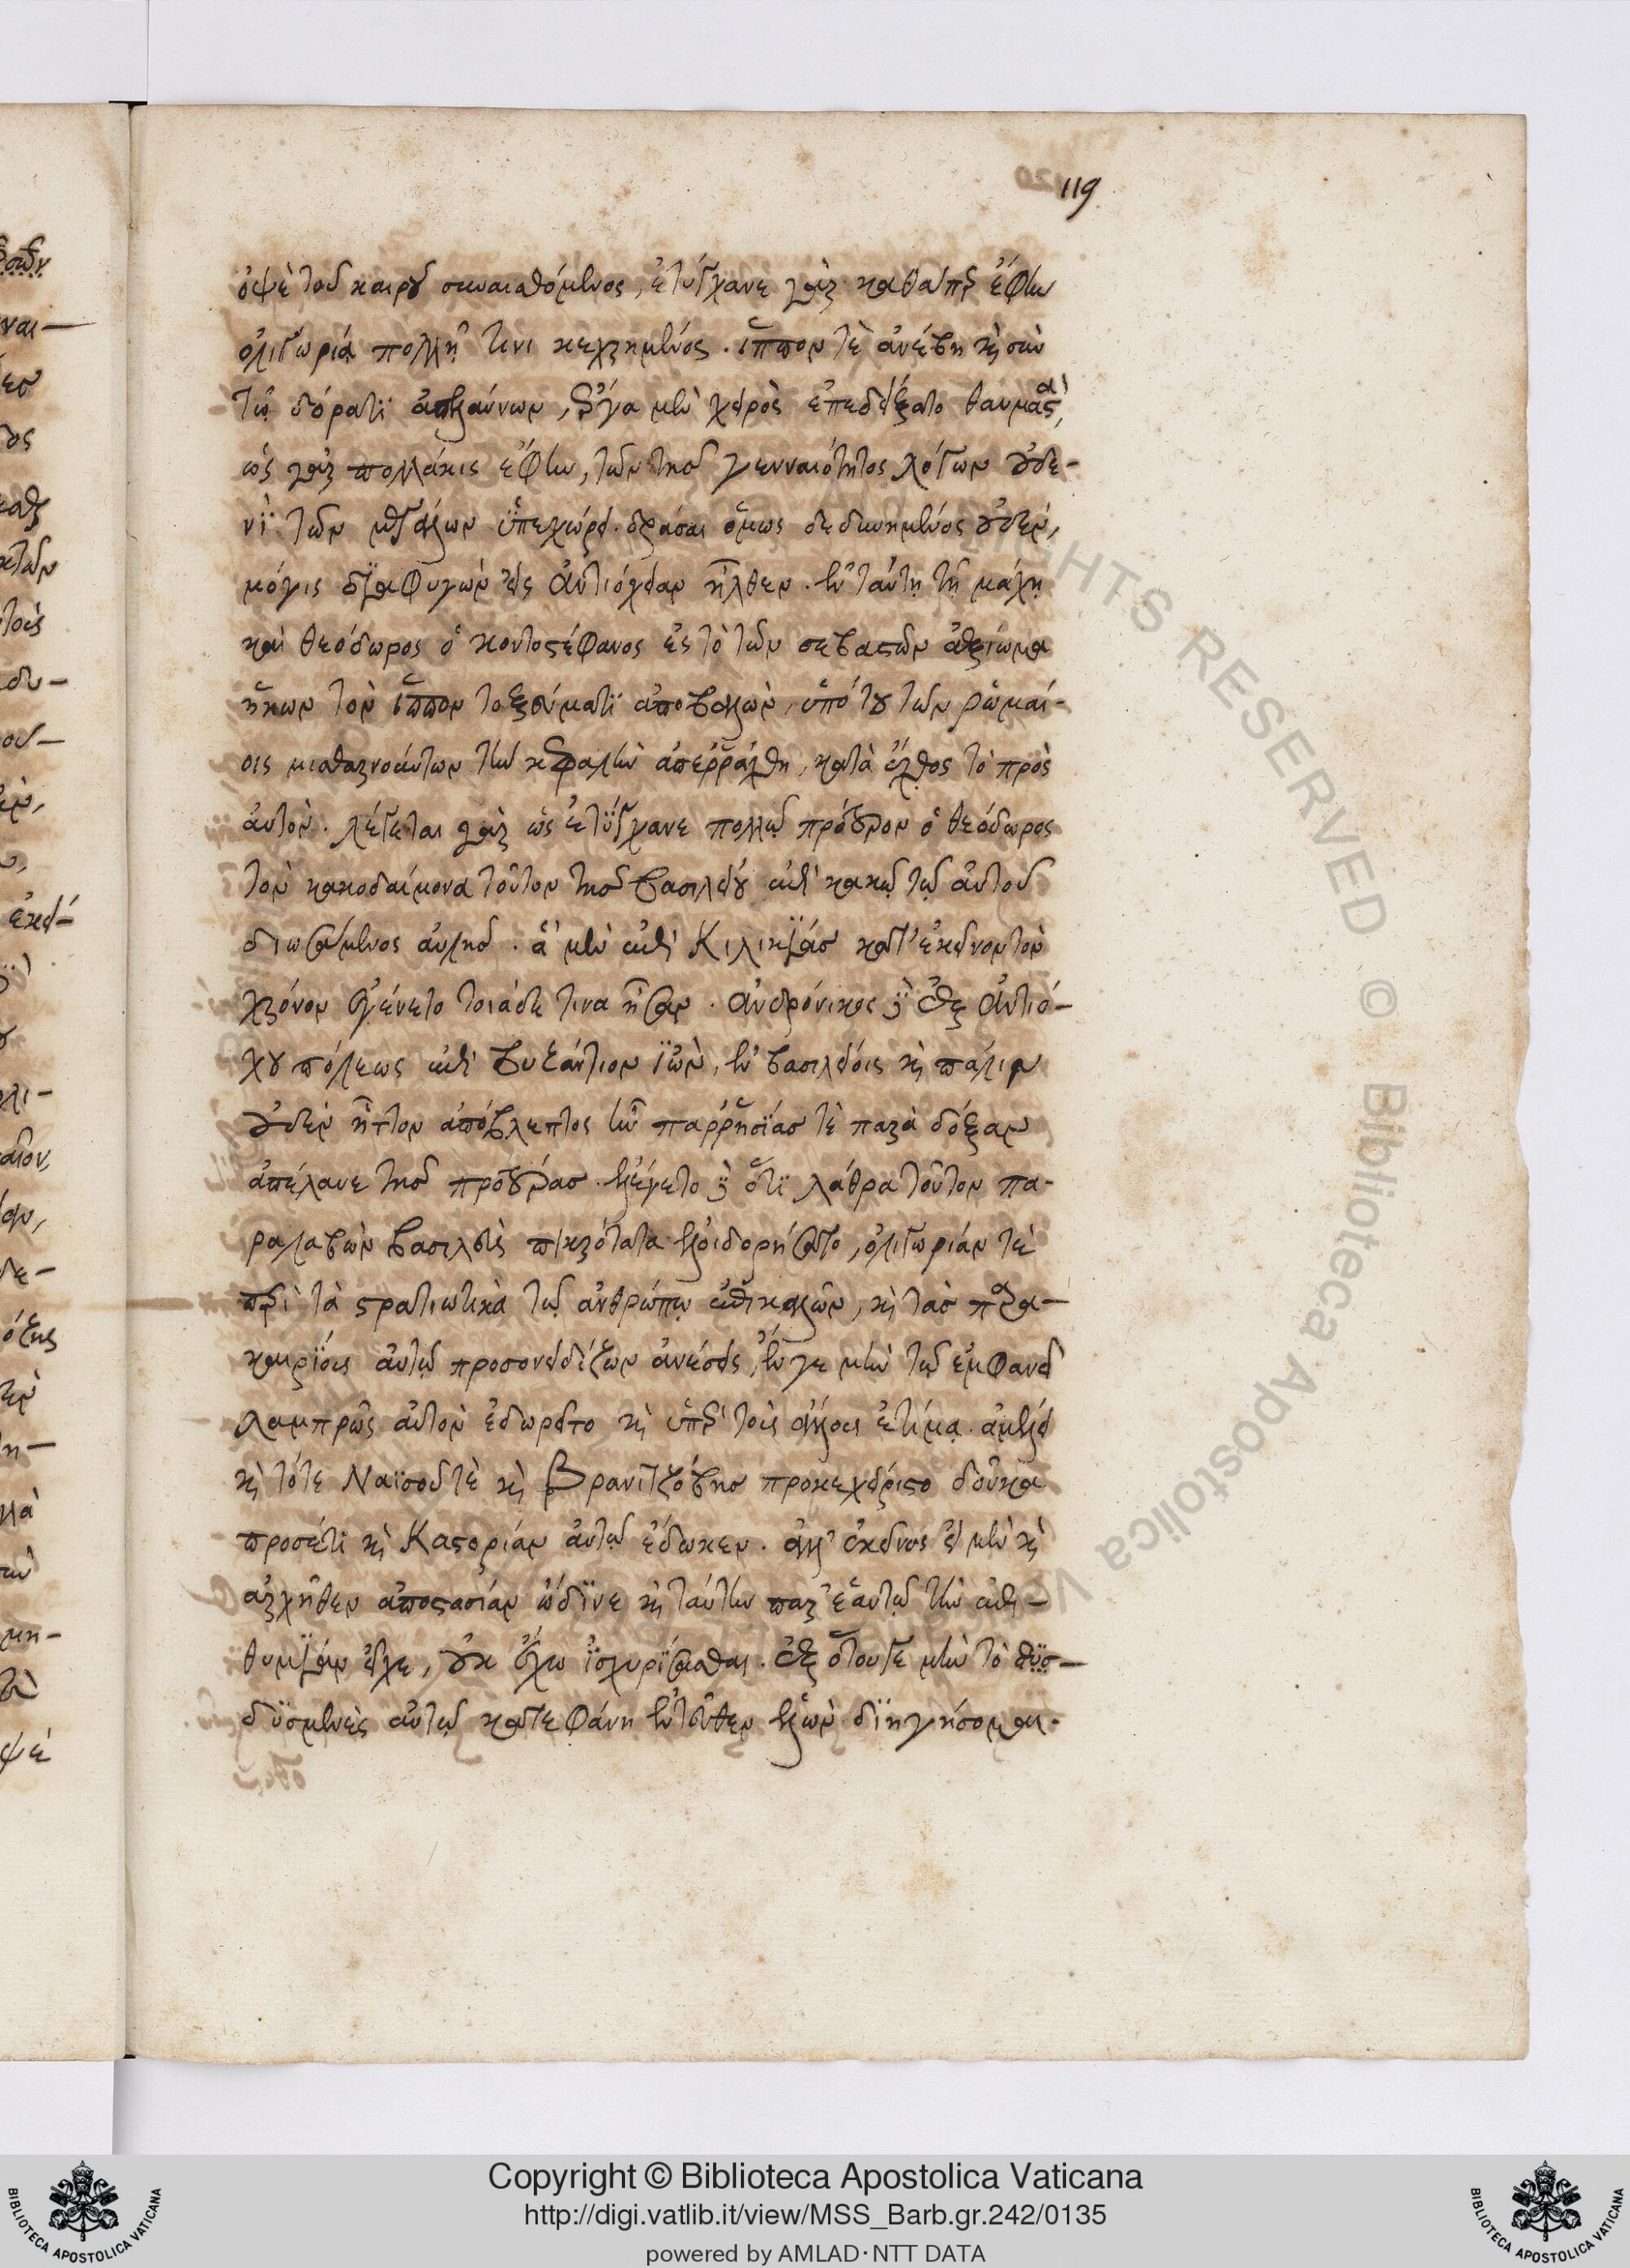 119
ὀψὲ τοῦ καιροῦ συναισθόμενος, ἐτύγχανε γὰρ καθάπερ ἔφην
ὀλιγωρίᾳ πολλῇ τινι κεχρημένος. ἵππον τὲ ἀνέβη καὶ σὺν
τῷ δόρατι ἀπελαύνων, ἔργα μὲν χειρὸς ἐπεδείξατο θαυμαστά,
ὡς γὰρ πολλάκις ἔφην, τῶν τῆς γενναιότητος λόγων οὐδε-
νὶ τῶν μεγάλων ὑπεχώρει. δρᾶσαι ὅμως δεδυνημένος οὐδὲν,
μόγις διαφυγὼν εἰς ἀντιόχειαν ἦλθεν. ἐν ταύτῃ τῇ μάχῃ
καὶ θεόδωρος ὁ κοντοστέφανος ἐς τὸ τῶν σεβαστῶν ἀξίωμα
ἥκων τὸν ἵππον τοξεύματι ἀποβαλὼν, ὑπό του τῶν ῥωμαί-
οις μισθαρνούντων τὴν κεφαλὴν ἀπερράχθη, κατὰ ἔχθος τὸ πρὸς
αὐτὸν. λέγεται γὰρ ὡς ἐτύγχανε πολλῷ πρότερον ὁ θεόδωρος
τὸν κακοδαίμονα τοῦτον τῆς βασιλείου ἐπὶ κακῷ τῷ αὐτοῦ
διωσάμενος αὐλῆς. ἃ μὲν ἐπὶ Κιλικίας κατ' ἐκεῖνον τὸν
χρόνον ἐγένετο τοιάδε τινα ἦσαν. ἀνδρόνικος δὲ ἐξ ἀντιό-
χου πόλεως ἐπὶ βυζάντιον ἰὼν, ἐν βασιλείοις καὶ πάλιν
οὐδὲν ἧττον ἀπόβλεπτος ἦν παρρησίας τὲ παρὰ δόξαν
ἀπέλαυε τῆς προτέρας. ἐλέγετο δὲ ὅτι λάθρα τοῦτον πα-
ραλαβὼν βασιλεὺς πικρότατα ἐλοιδορήσατο, ὀλιγωρίαν τὲ
περὶ τὰ στρατιωτικὰ τῷ ἀνθρώπῳ ἐπικαλῶν, καὶ τὰς παρα-
καιρίοις αὐτῷ προσονειδίζων ἀνέσεις, ἔν γε μὴν τῷ ἐμφανεῖ
λαμπρῶς αὐτὸν ἐδωρεῖτο καὶ ὑπὲρ τοὺς ἄλλους ἐτίμα. ἀμέλει
καὶ τότε Ναϊσοῦ τὲ καὶ βρανιτζόβης προκεχείριστο δοῦκα
προσέτι καὶ Καστορίαν αὐτῷ ἔδωκεν. ἀλλ' ἐκεῖνος εἰ μὲν καὶ
ἀρχῆθεν ἀποστασίαν ὤδινε καὶ ταύτην παρ' ἑαυτῷ τὴν ἐπι-
θυμίαν εἶχε, οὐκ ἔχω ἰσχυρίσασθαι. ἐξ ὅτου γε μὴν τὸ
δυσμενὲς αὐτῷ κατεφάνη ἐντεῦθεν ἑλὼν διηγήσομαι.
Copyright © Biblioteca Apostolica Vaticana
http://digi.vatlib.it/view/MSS_Barb.gr.242/0135
powered by AMLAD·NTT DATA